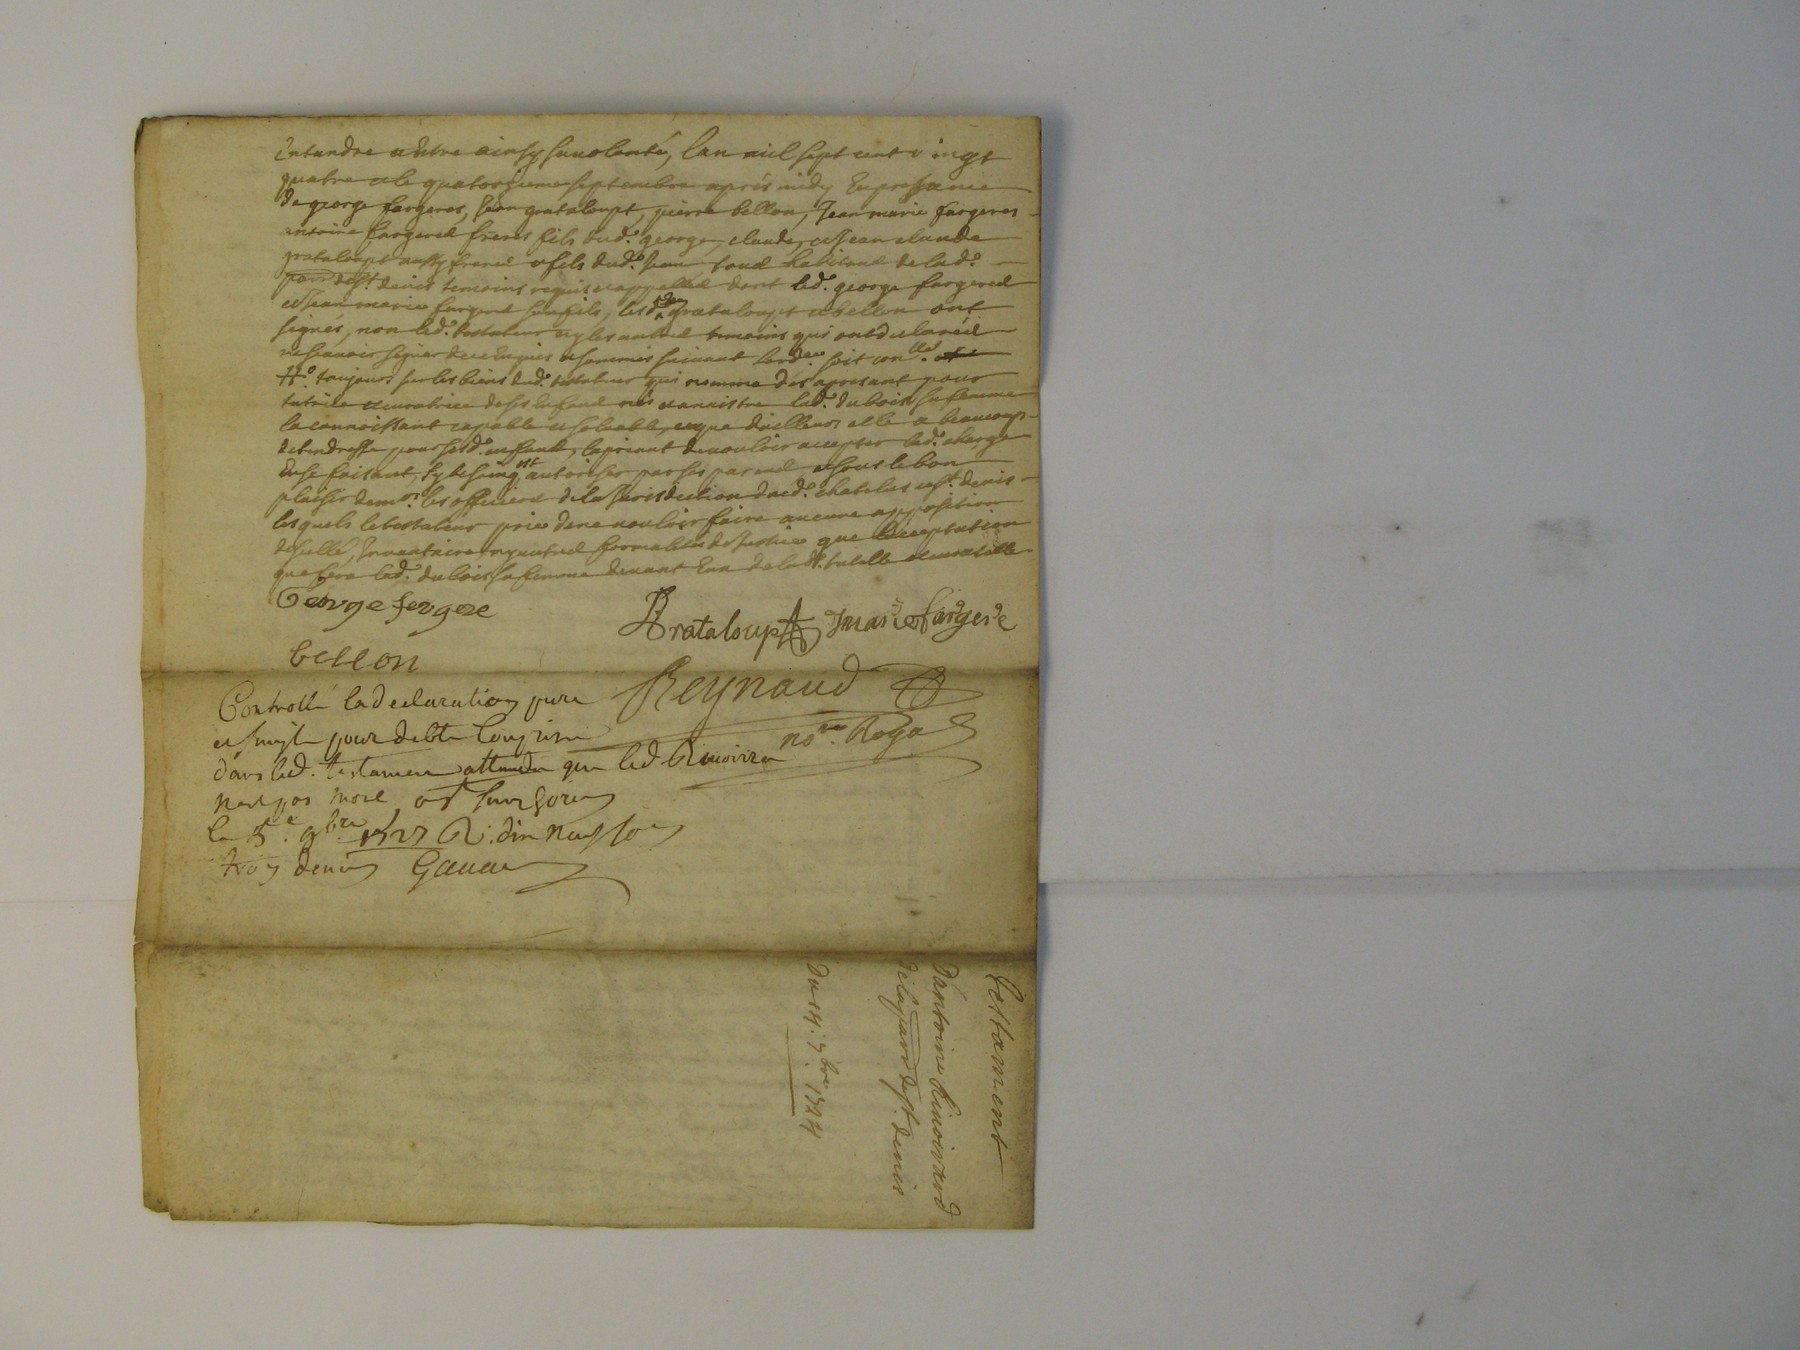 Entandre a Estre ainsy sa volonté, lan mil sept cent vingt
quatre et le quatorzieme septembre aprés midy En presance
de george fargeres, Jean grataloupt, pierre bellon, Jean marie fargeres
antoine fargered freres fils dud.t george, claude, et Jean claude
grataloupt aussy frered et fils dud.t Jean tous habitant de lad.e
parr de St. denis temoins requis et appelled dont led.t george fargered
et Jean marie fargered son fils, lesd. grataloupt et bellon ont
signés, non led.t testateur ny les autred temoins qui ont declaréd
ne scavoir signer de ce Enquis et sommés suivant lord.ce soit con.llé
toujours sur les biens dud.t testateur qui nomme dés apresant pour
tutrice et curatrice de ses Enfand nés et a naistre lad.e dubois sa femme
la connoissant capable et solvable, et que dailleurs elle a beaucoup
de tendresse pour sesd. enfand, la priant de vouloir accepter lad.e charge
et ce faisant, autoriser par ses parend et sous le bon
plaisir de mrs. les officiers de la Jurisdiction dud.t chatelus et St. denis
les quels le testateur prie de ne vouloir faire aucune apposition
de scellé, Inventaire ny autred formalités de Justice que lacceptation
que fera lad.e dubois sa femme devant Eux de lad.te tutelle et curatelle
George fergere
Grataloupt J marie fargere
bellon
Reynaud
no.re Roya
Controllé la declaration pure
et simple pour debte Comprise
dans led. testament attendu que led Rivoirre
nest pas mort a St Simphorien
le 5e. 9bre 1727 R. dix neuf so
troy deniers Gavau
Testament
Dantoine Rivoirard
de la parr de St. denis
Du 14. 7bre. 1724